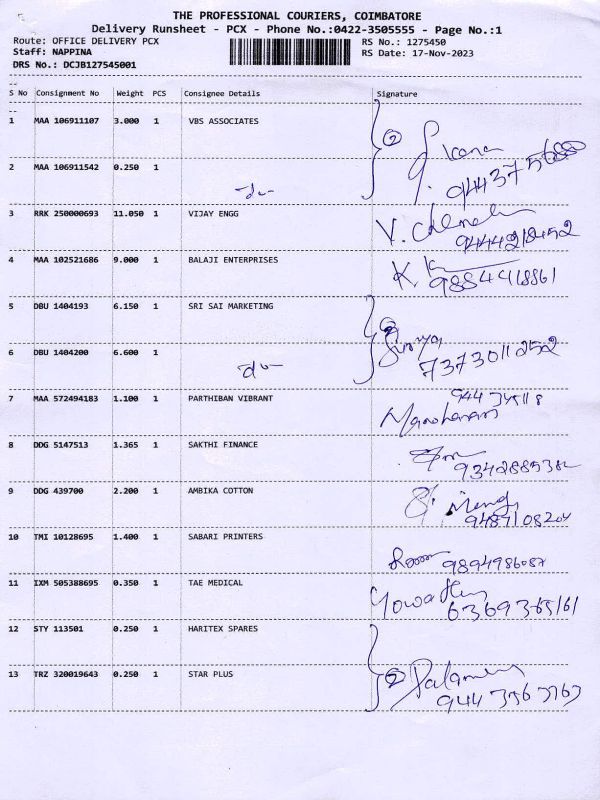 THE PROFESSIONAL COURIERS, COIMBATORE
Delivery Runsheet - PCX - Phone No.:0422-3505555 - Page No.:1
Route: OFFICE DELIVERY PCX RS No.: 1275450
Staff: NAPPINA RS Date: 17-Nov-2023
DRS No.: DCJB127545001
S No Consignment No Weight PCS Consignee Details Signature
1 MAA 106911107 3.000 1 VBS ASSOCIATES 2
2 MAA 106911542 0.250 1
3 RRK 250000693 11.050 1 VIJAY ENGG V.
9444218452
4 MAA 102521686 9.000 1 BALAJI ENTERPRISES K.
9884418861
5 DBU 1404193 6.150 1 SRI SAI MARKETING 2
Surya
6 DBU 1404200 6.600 1 7373011252
7 MAA 572494183 1.100 1 PARTHIBAN VIBRANT
Manoharan
8 DDG 5147513 1.365 1 SAKTHI FINANCE
9342885382
9 DDG 439700 2.200 1 AMBIKA COTTON
9487108204
10 TMI 10128695 1.400 1 SABARI PRINTERS
9894986087
11 IXM 505388695 0.350 1 TAE MEDICAL
6369365161
12 STY 113501 0.250 1 HARITEX SPARES
13 TRZ 320019643 0.250 1 STAR PLUS 2